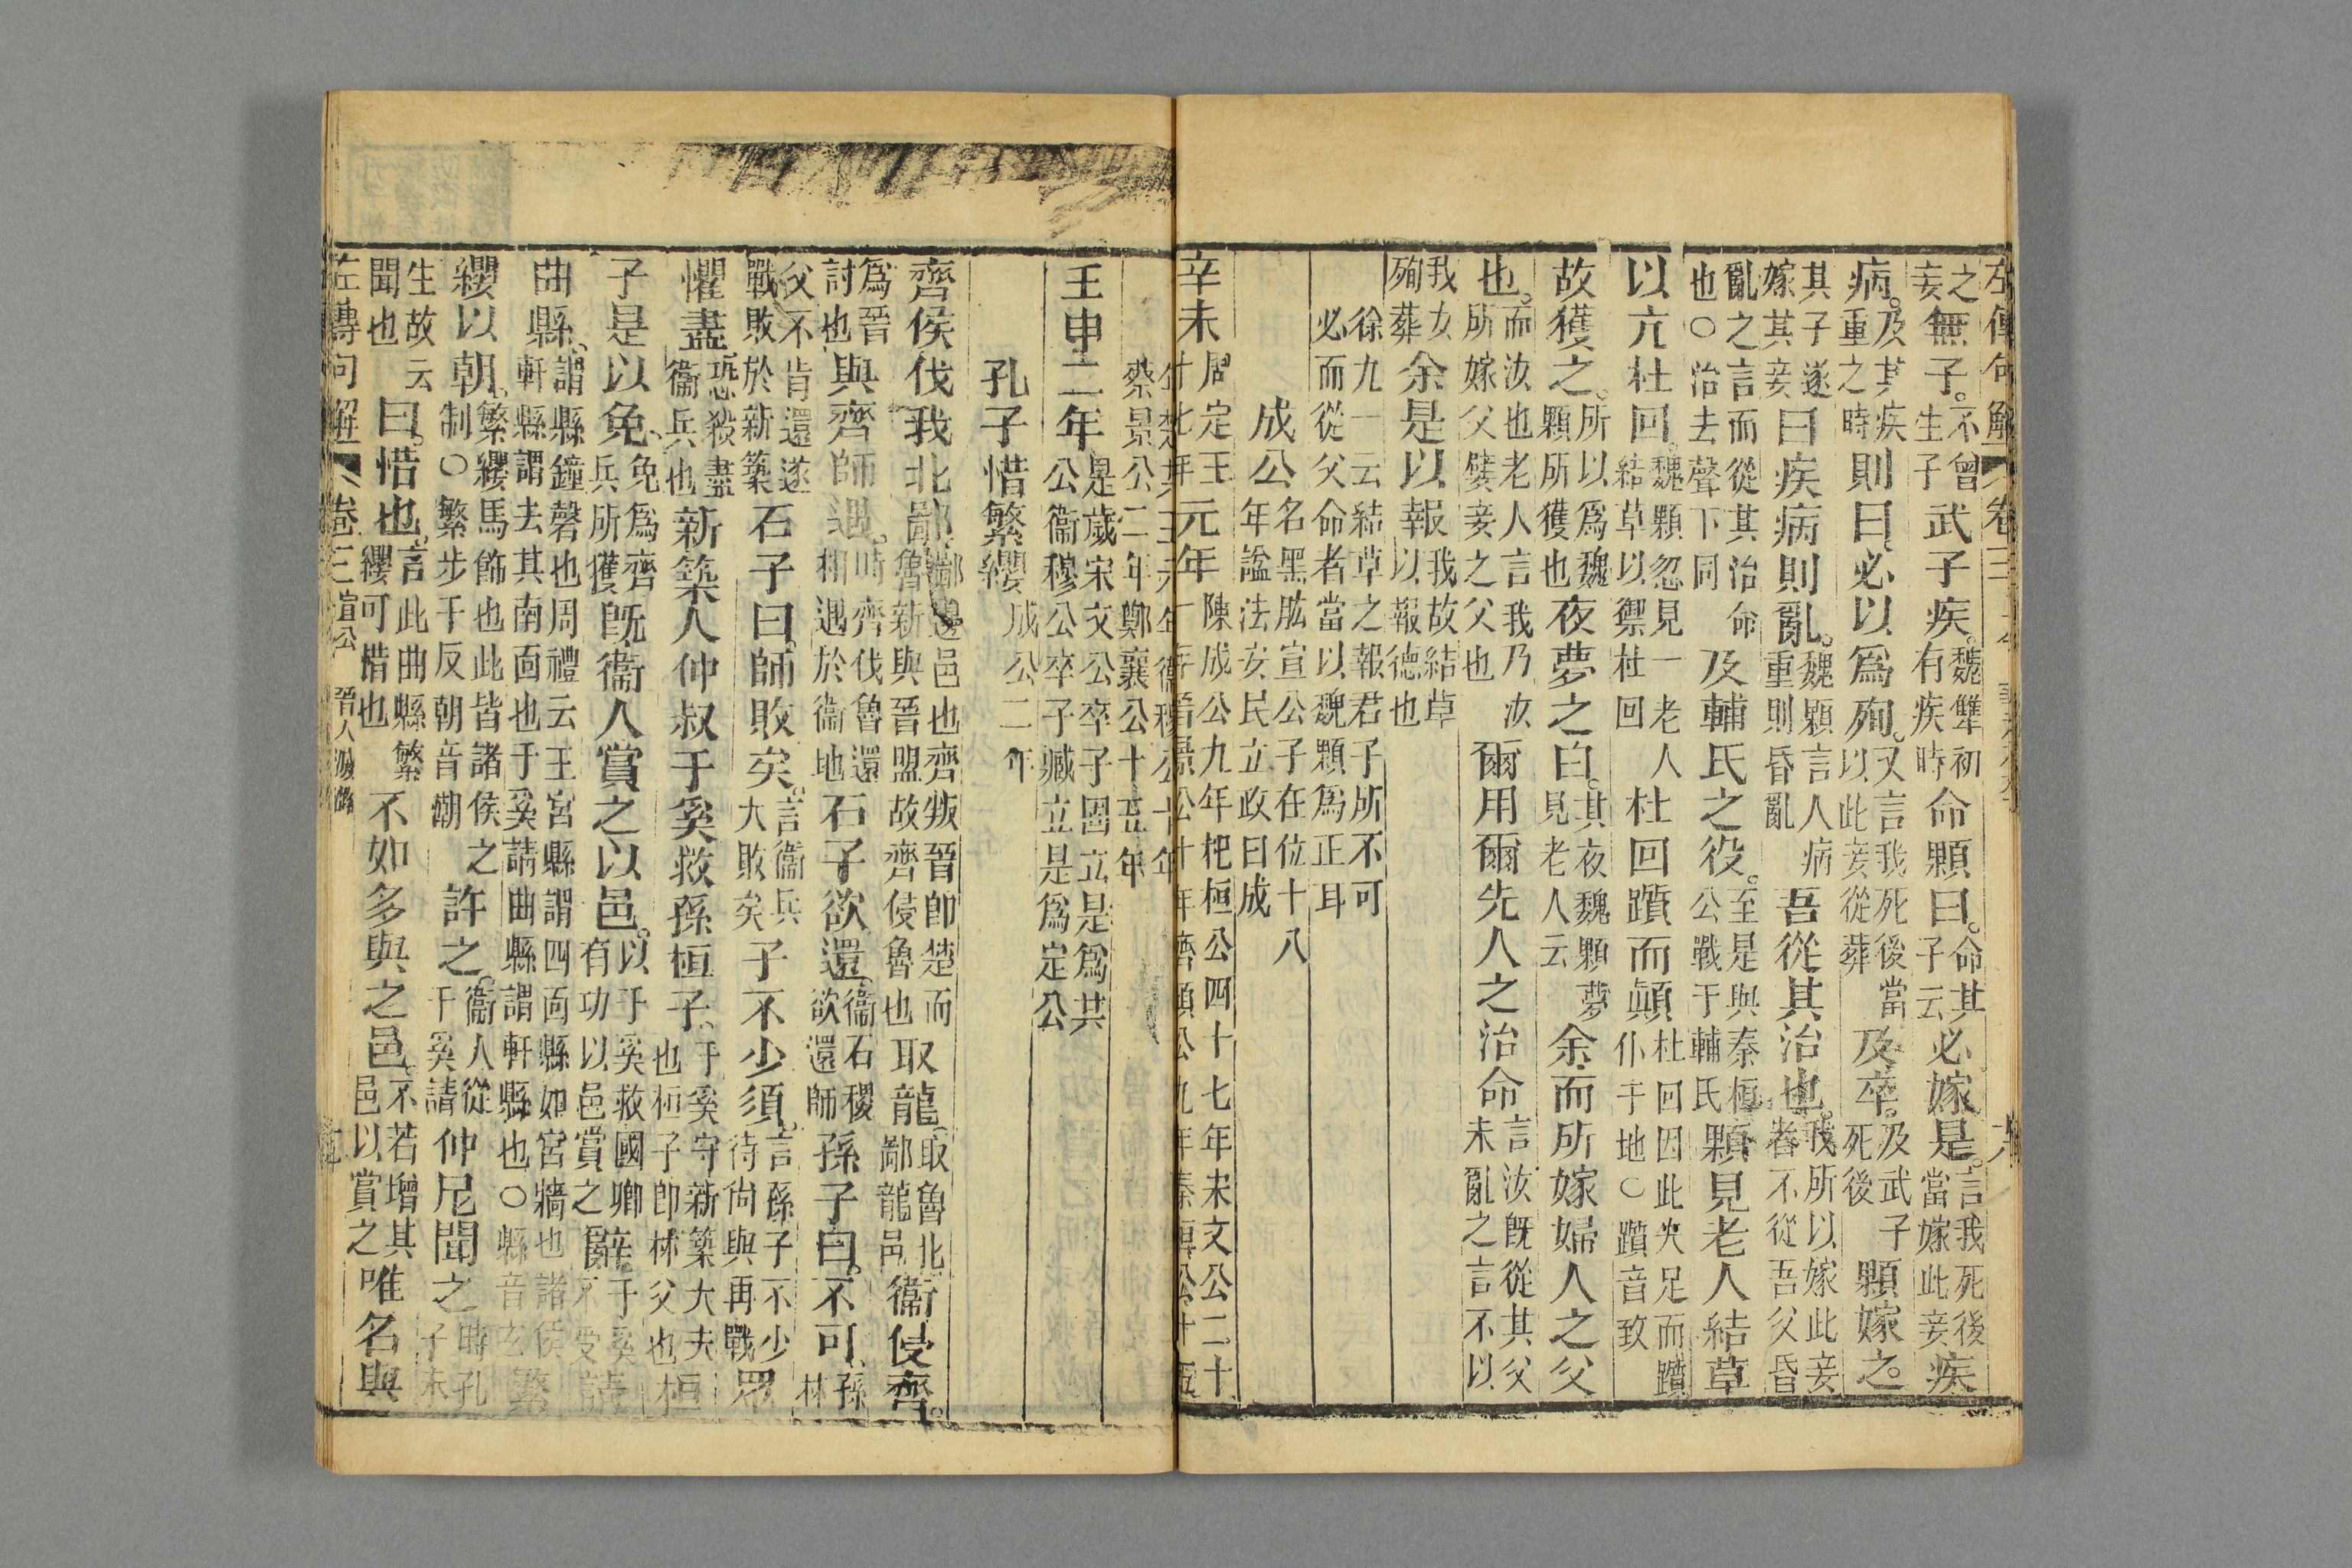 之妾無子。不曾生子武子疾。魏犨初有疾時命顆曰。命其子云必嫁是。言我死後當嫁此妾疾
病。及其疾重之時則曰必以爲殉。又言我死後當以此妾從葬及卒。及武子死後顆嫁之。
其子遂嫁其妾曰疾病則亂。魏顆言人病重則昏亂吾從其治也。我所以嫁此妾者不從吾父昏
亂之言而從其治命也○治去聲下同及輔氏之役。至是與秦桓公戰于輔氏顆見老人結草
以亢杜回。魏顆忽見一老人結草以禦杜回杜回躓而顛杜回因此失足而躓仆于地○躓音致
故獲之。所以爲魏顆所獲也夜夢之曰。其夜魏顆夢見老人云余而所嫁婦人之父
也。而汝也老人言我乃汝所嫁父嬖妾之父也爾用爾先人之治命言汝既從其父未亂之言不以
我女殉葬余是以報我故結草以報德也
徐九一云結草之報君子所不可必而從父命者當以魏顆爲正耳
成公名黑肱宣公子在位十八年諡法安民立政曰成
辛未周定王十七年元年陳成公九年杞桓公四十七年宋文公二十一年晉景公十年齊頃公九年秦桓公十五
年楚共王元年衛穆公十年蔡景公二年鄭襄公十五年
壬申二年是歲宋文公卒子固立是爲共公衛穆公卒子臧立是爲定公
孔子惜繁纓成公二年
齊侯伐我北鄙鄙邊邑也齊叛晉卽楚而魯新與晉盟故齊侵魯也取龍取魯北鄙龍邑衛侵齊。
爲晉討也與齊師遇。時齊伐魯還相遇於衛地石子欲還衛石稷欲還師孫子曰。不可孫林
父不肯還遂戰敗於新築石子曰師敗矣。言衛兵大敗矣子不少須言孫子不少待尚與再戰眾
懼盡恐殺盡衛兵也新築人仲叔于奚救孫桓子于奚守新築大夫也桓子卽林父也桓
子是以免免爲齊兵所獲旣衛人賞之以邑。以于奚救國卿有功以邑賞之辭于奚不受請
曲縣謂縣鐘磬也周禮云王宮縣謂四面縣如宮牆也諸侯軒縣謂去其南面也于奚請曲縣謂軒縣也○縣音玄繁
纓以朝。繁纓馬飾也此皆諸侯之制○繁步干反朝音潮許之。衛人從于奚請仲尼聞之時孔子未
生故云聞也曰。惜也。言此曲縣繁纓可惜也不如多與之邑不若增其邑以賞之唯名與
左傳句解 卷三 宣公